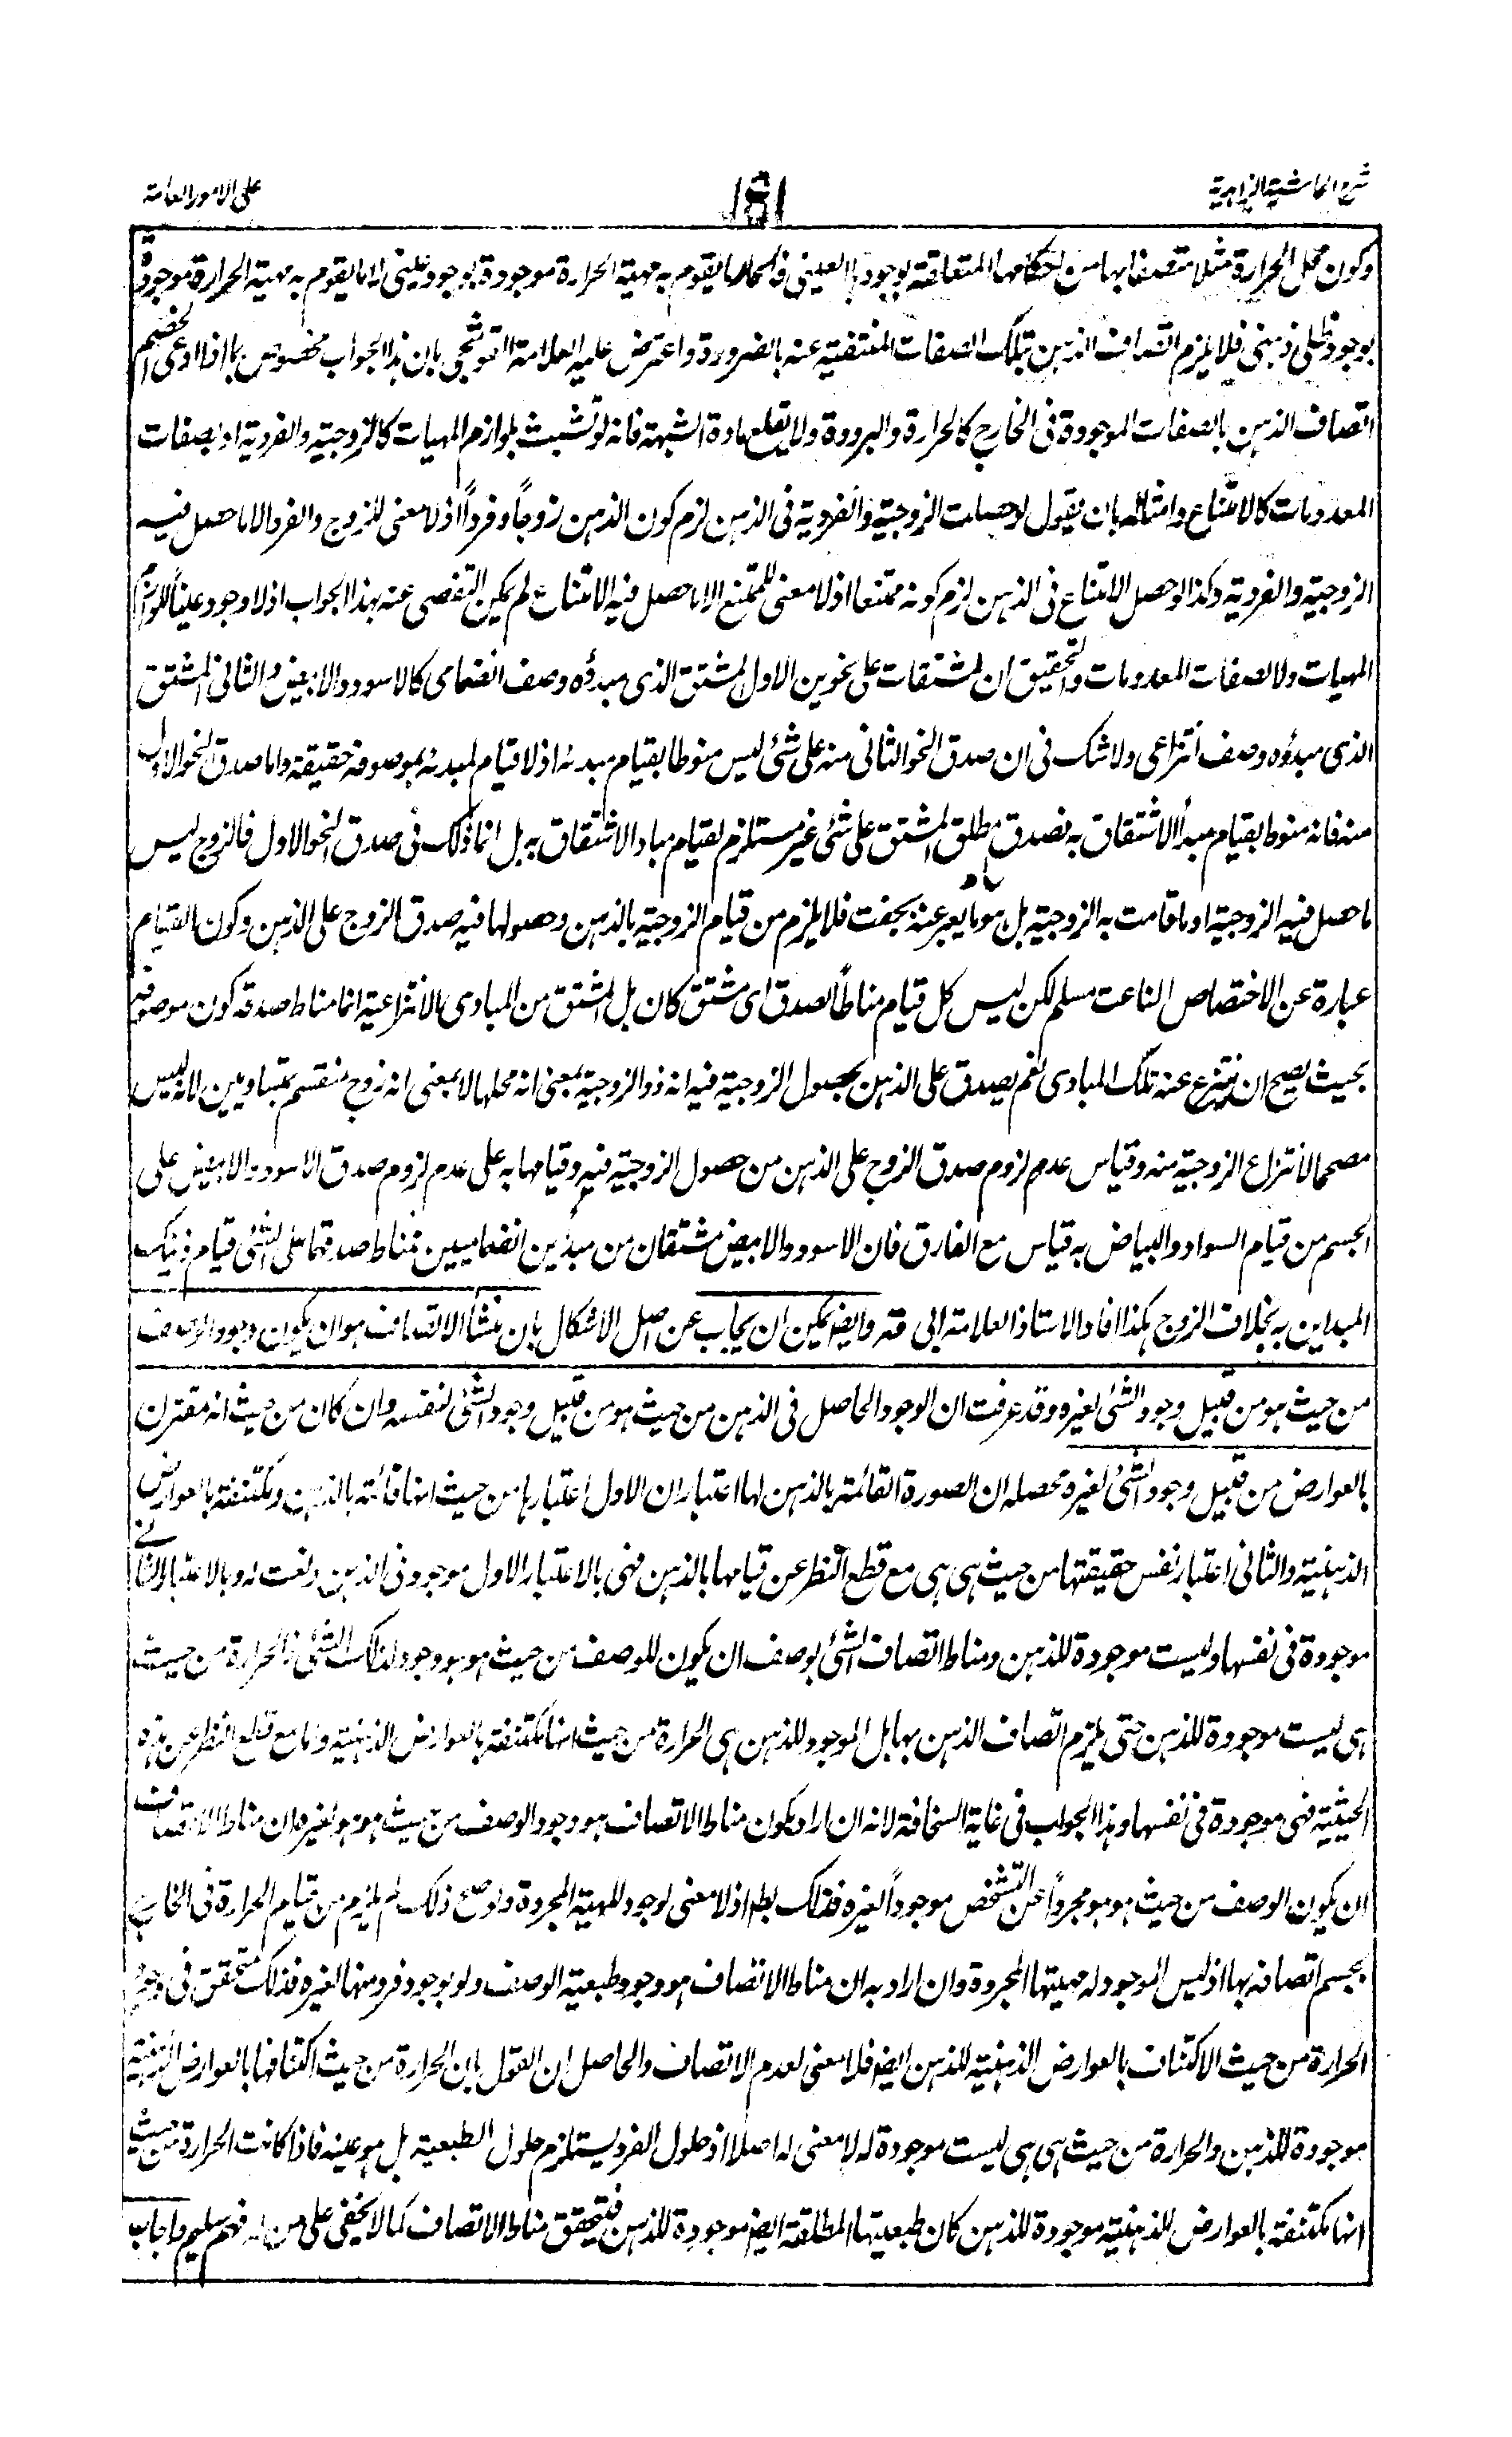 شرح الحاشية الزاهدية
على الامور العامة
وكون محل الحرارة مثلا متصفا بها من احكامها المتعلقة بوجودها العيني فالحار ما يقوم به مهية الحرارة موجودة بوجود عيني لا ما يقوم به مهية الحرارة موجودة
بوجود ظلي ذهني فلا يلزم اتصاف الذهن بتلك الصفات المنتفية عنه بالضرورة واعترض عليه العلامة القوشجي بان هذا الجواب مخصوص بما اذا ادعى الخصم
اتصاف الذهن بالصفات الموجودة في الخارج كالحرارة والبرودة ولا يقلع مادة الشبهة فانه لو تشبث بلوازم المهيات كالزوجية والفردية او بصفات
المعدومات كالامتناع وامثاله بان يقول لو حصلت الزوجية والفردية في الذهن لزم كون الذهن زوجاً وفرداً اذ لا معنى للزوج والفرد الا ما حصل فيه
الزوجية والفردية وكذا لو حصل الامتناع في الذهن لزم كونه ممتنعا اذ لا معنى للممتنع الا ما حصل فيه الامتناع لم يمكن التفصى عنه بهذا الجواب اذ لا وجود عينياً للوازم
المهيات ولا لصفات المعدومات والتحقيق ان المشتقات على نحوين الاول المشتق الذي مبدؤه وصف انضمامي كالاسود والابيض و الثاني المشتق
الذي مبدؤه وصف انتزاعي ولا شك في ان صدق النحو الثاني منه على شئ ليس منوطا بقيام مبدئه اذ لا قيام لمبدئه بموصوفه حقيقة واما صدق النحو الاول
منه فانه منوط بقيام مبدأ الاشتقاق به فصدق مطلق المشتق على شئ غير مستلزم لقيام مباد الاشتقاق به بل انما ذلك في صدق النحو الاول فالزوج ليس
ما حصل فيه الزوجية او ما قامت به الزوجية بل هو ما يعبر عنه بجفت فلا يلزم من قيام الزوجية بالذهن وحصولها فيه صدق الزوج على الذهن وكون القيام
عبارة عن الاختصاص الناعت مسلم لكن ليس كل قيام مناطاً لصدق اي مشتق كان بل المشتق من المبادى الانتزاعية انما مناط صدقه كون موصوفه
بحيث يصح ان ينتزع عنه تلك المبادى نعم يصدق على الذهن بحصول الزوجية فيه انه ذو الزوجية بمعنى انه محلها لا بمعنى انه زوج منقسم بمتساويين لانه ليس
مصححا لانتزاع الزوجية منه وقياس عدم لزوم صدق الزوج على الذهن من حصول الزوجية فيه وقيامها به على عدم لزوم صدق الاسود والابيض على
الجسم من قيام السواد والبياض به قياس مع الفارق فان الاسود والابيض مشتقان من مبدئين انضماميين فمناط صدقهما على الشئ قيام ذينك
المبداين به بخلاف الزوج هكذا افاد الاستاذ العلامة ابي قده وايضا يمكن ان يجاب عن اصل الاشكال بان منشأ الاتصاف هو ان يكون وجود الوصف
من حيث هو من قبيل وجود الشئ لغيره وقد عرفت ان الوجود الحاصل في الذهن من حيث هو من قبيل وجود الشئ لنفسه وان كان من حيث انه مقترن
بالعوارض من قبيل وجود الشئ لغيره محصله ان الصورة القائمة بالذهن لها اعتباران الاول اعتبارها من حيث انها قائمة بالذهن ومكتنفة بالعوارض
الذهنية والثاني اعتبار نفس حقيقتها من حيث هي هي مع قطع النظر عن قيامها بالذهن فهي بالاعتبار الاول موجود في الذهن ونعت له وبالاعتبار الثاني
موجودة في نفسها وليست موجودة للذهن ومناط اتصاف الشئ بوصف ان يكون للوصف من حيث هو هو وجود لذلك الشئ فالحرارة من حيث
هي ليست موجودة للذهن حتى يلزم اتصاف الذهن بها بل الموجود للذهن هي الحرارة من حيث انها مكتنفة بالعوارض الذهنية واما مع قطع النظر عن هذه
الحيثية فهي موجودة في نفسها وهذا الجواب في غاية السخافة لانه ان اراد بكون مناط الاتصاف هو وجود الوصف من حيث هو هو لغيره ان مناط الاتصاف
ان يكون الوصف من حيث هو هو مجرداً عن التشخص موجوداً لغيره فذلك بط اذ لا معنى لوجود للمهية المجردة ولو صح ذلك لم يلزم من قيام الحرارة في الخارج
بجسم اتصافه بها اذ ليس الموجود له مهيتها المجردة وان اراد به ان مناط الاتصاف هو وجود طبيعة الوصف ولو بوجود فرد منها لغيره فذلك متحقق في وجود
الحرارة من حيث الاكتناف بالعوارض الذهنية للذهن ايضا فلا معنى لعدم الاتصاف والحاصل ان القول بان الحرارة من حيث اكتنافها بالعوارض الذهنية
موجودة للذهن والحرارة من حيث هي هي ليست موجودة له لا معنى له اصلا اذ حلول الفرد يستلزم حلول الطبيعة بل هو عينه فاذا كانت الحرارة من حيث
انها مكتنفة بالعوارض الذهنية موجودة للذهن كان طبيعتها المطلقة ايضا موجودة للذهن فيتحقق مناط الاتصاف كما لا يخفى على من له فهم سليم واجاب